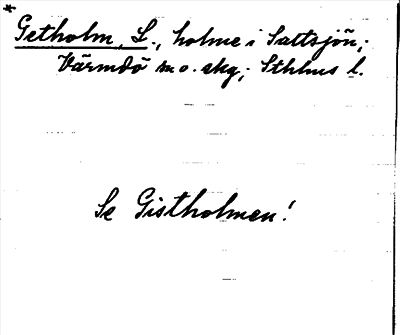 *
Getholm, L., holme i Saltsjön;
Värmdö s. o. skg; Sthlms l.
Se Gistholmen!